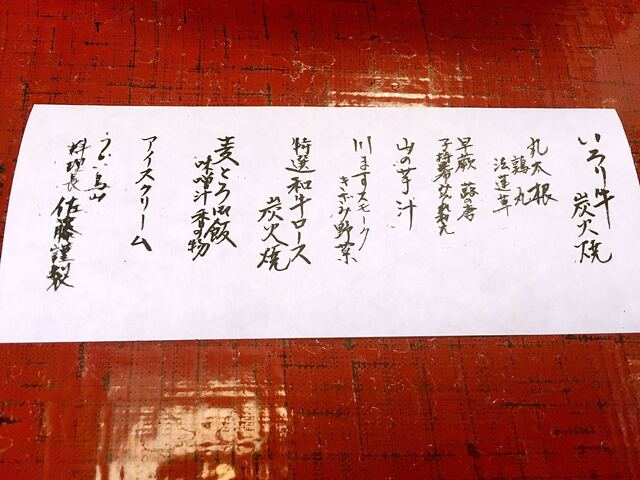 いろり牛
炭火焼
丸大根
鶏丸
法蓮草
早蕨 蕗の唐
山の芋汁
川ますスモーク
きざみ野菜
特選和牛ロース
炭火焼
麦とろ御飯
味噌汁 香の物
アイスクリーム
うかい鳥山
料理長 佐藤謹製